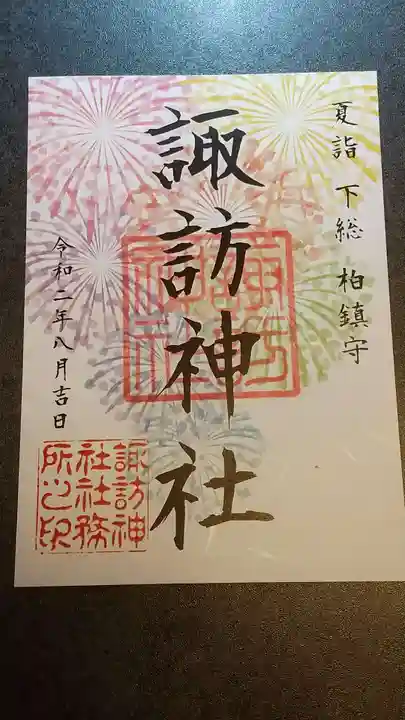 夏詣 下総 柏鎮守
諏訪神社
令和二年八月吉日
諏訪神社
諏訪神
社社務
所之印